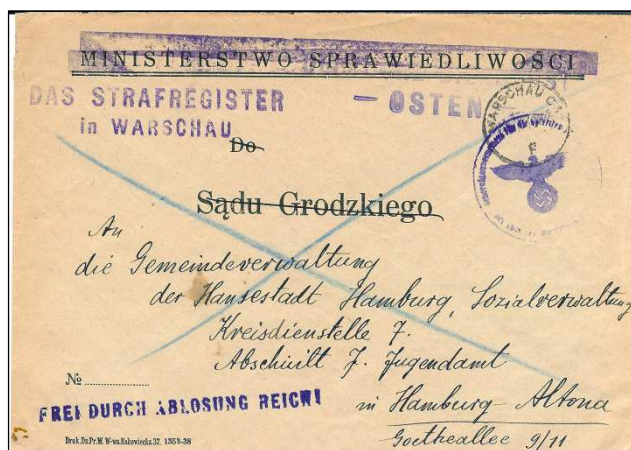 MINISTERSTWO SPRAWIEDLIWOŚCI
DAS STRAFREGISTER — OSTEN
in WARSCHAU
WARSCHAU C1
Do
Sądu Grodzkiego
An
die Gemeindeverwaltung
der Hansestadt Hamburg, Sozialverwaltung
Kreisdienstelle 7.
Abschnitt J. Jugendamt
in Hamburg Altona
Goetheallee 9/11
№
FREI DURCH ABLOSUNG REICH!
Druk.Dz.Pr.M. W-wa.Rakowiecka 37. 1353-38